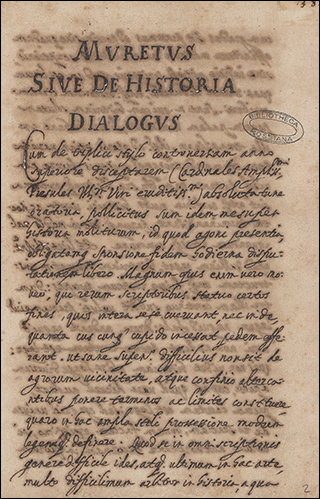 138
MVRETVS
SIVE DE HISTORIA
DIALOGVS
BIBLIOTHECA ROSSIANA
Cum de triplici stylo controversiam anno
superiore disceptarem Cardinales Ampliss.
Praesules Viri eruditiss. absolutaque
oratoria, pollicitus sum idem me super
historia moliturum, id quod agoni praesenti,
obligatam sponsione fidem hodierna dispu-
tatione libero. Magnum quis enim vero no-
qui rerum scriptoribus statuo certos
fines, quos intera sese nec in de
quanta cus cunq. cupido incessat pedem effe-
rant. difficilius non sit de
agrorum vicinitate, atque confinio alterca-
ntibus ponere terminos ac limites constituere
quam in hac ampla modum
definire. Quod si in omni scriptionis
genere difficile id est, atq. ultimum in hac arte,
multo difficilimum arbitror in historia
2